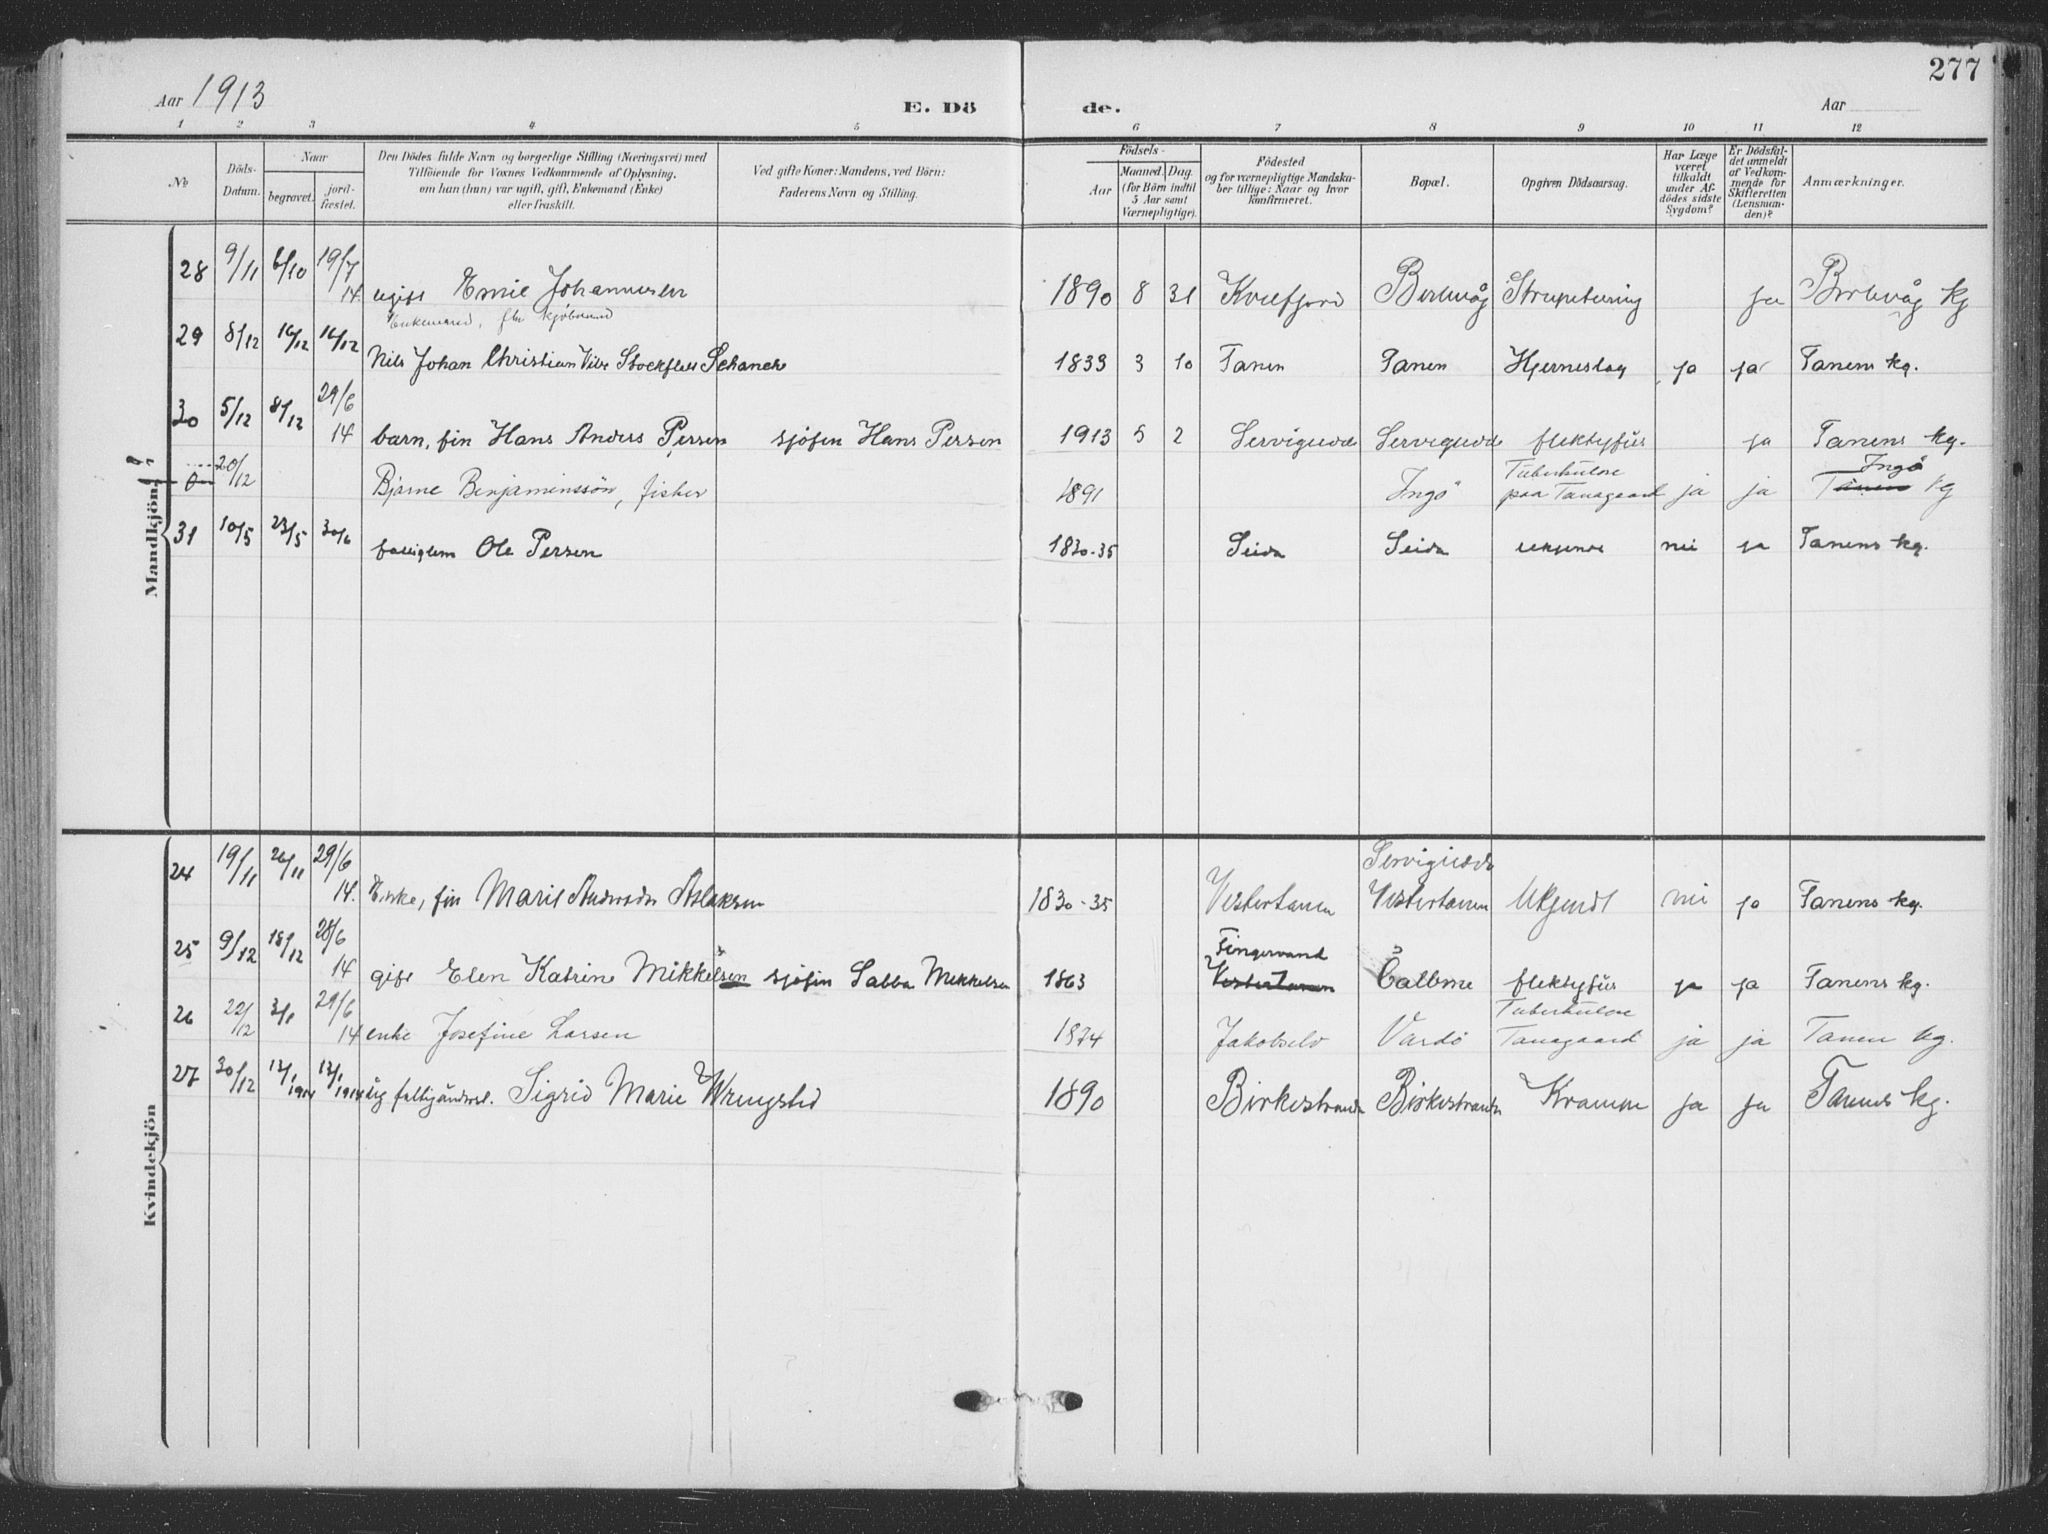 277
Aar 1913 E. Dö de. Aar
1 2 3 4 5 6 7 8 9 10 11 12
No
Döds-Datum.
Naar
begravet.
jordfæstet.
Den Dödes fulde Navn og borgerlige Stilling (Næringsvei) med
Tilföiende for Voxnes Vedkommende af Oplysning,
om han (hun) var ugift, gift, Enkemand (Enke)
eller fraskilt.
Ved gifte Koner: Mandens, ved Börn:
Faderens Navn og Stilling.
Födsels-
Aar
Maaned. Dag.
(for Börn indtil
5 Aar samt
Værnepligtige).
Födested
og for værnepligtige Mandska-
ber tillige: Naar og hvor
konfirmeret.
Bopæl.
Opgiven Dödsaarsag.
Har Læge
været
tilkaldt
under Af-
dödes sidste
Sygdom?
Er Dödsfal-
det anmeldt
af Vedkom-
mende for
Skifteretten
(Lensman-
den)?
Anmærkninger.
Mandkjön.
28 9/11 6/10 19/7 14 ugift Emil Johannesen 1890 8 31 Kvefjord Berlevåg Strupetæring ja Berlevåg kg
Enkemand, fhv kjøbmand
29 8/12 16/12 16/12 Nils Johan Christian Vibe Stockfleth Schanche 1833 3 10 Tanen Tanen Hjerneslag ja ja Tanens kg.
30 5/12 8/12 29/6 14 barn, fin Hans Anders Persen sjöfin Hans Persen 1913 5 2 Servigiedde Servigiedde flektyfus ja Tanens kg.
0 20/12 Bjarne Benjaminssön, fisker 1891 Ingö Tuberkulose paa Tanagaard ja ja Tanen Ingö kg
31 10/5 23/5 30/6 fattiglem Ole Persen 1830-35 Seida Seida ukjendt nei ja Tanens kg.
Kvindekjön
24 19/11 26/11 29/6 14. Enke, fin Marit Andersdr Aslaksen 1830-35 Vestertanen Servigiedde Vestertanen Ukjendt nei ja Tanens kg.
25 9/12 18/12 28/6 14 gift Elen Katrine Mikkelsen sjöfin Sabba Mikkelsen 1863 Vestertanen Fingervand Čalbme flektyfus ja ja Tanens kg.
26 22/12 3/1 29/6 14 enke Josefine Larsen 1874 Jakobselv Vardö Tuberkulose Tanagaard ja ja Tanen kg.
27 30/12 12/1 1914 12/1 1914 ug Sigrid Marie Wrengsted 1890 Birkestrand Birkestrand Krampe ja ja Tanens kg.